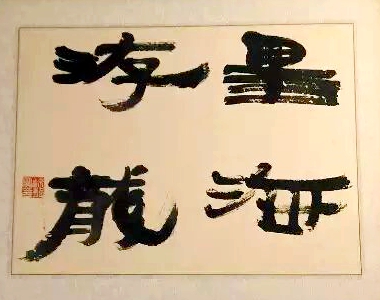 墨海
游龍